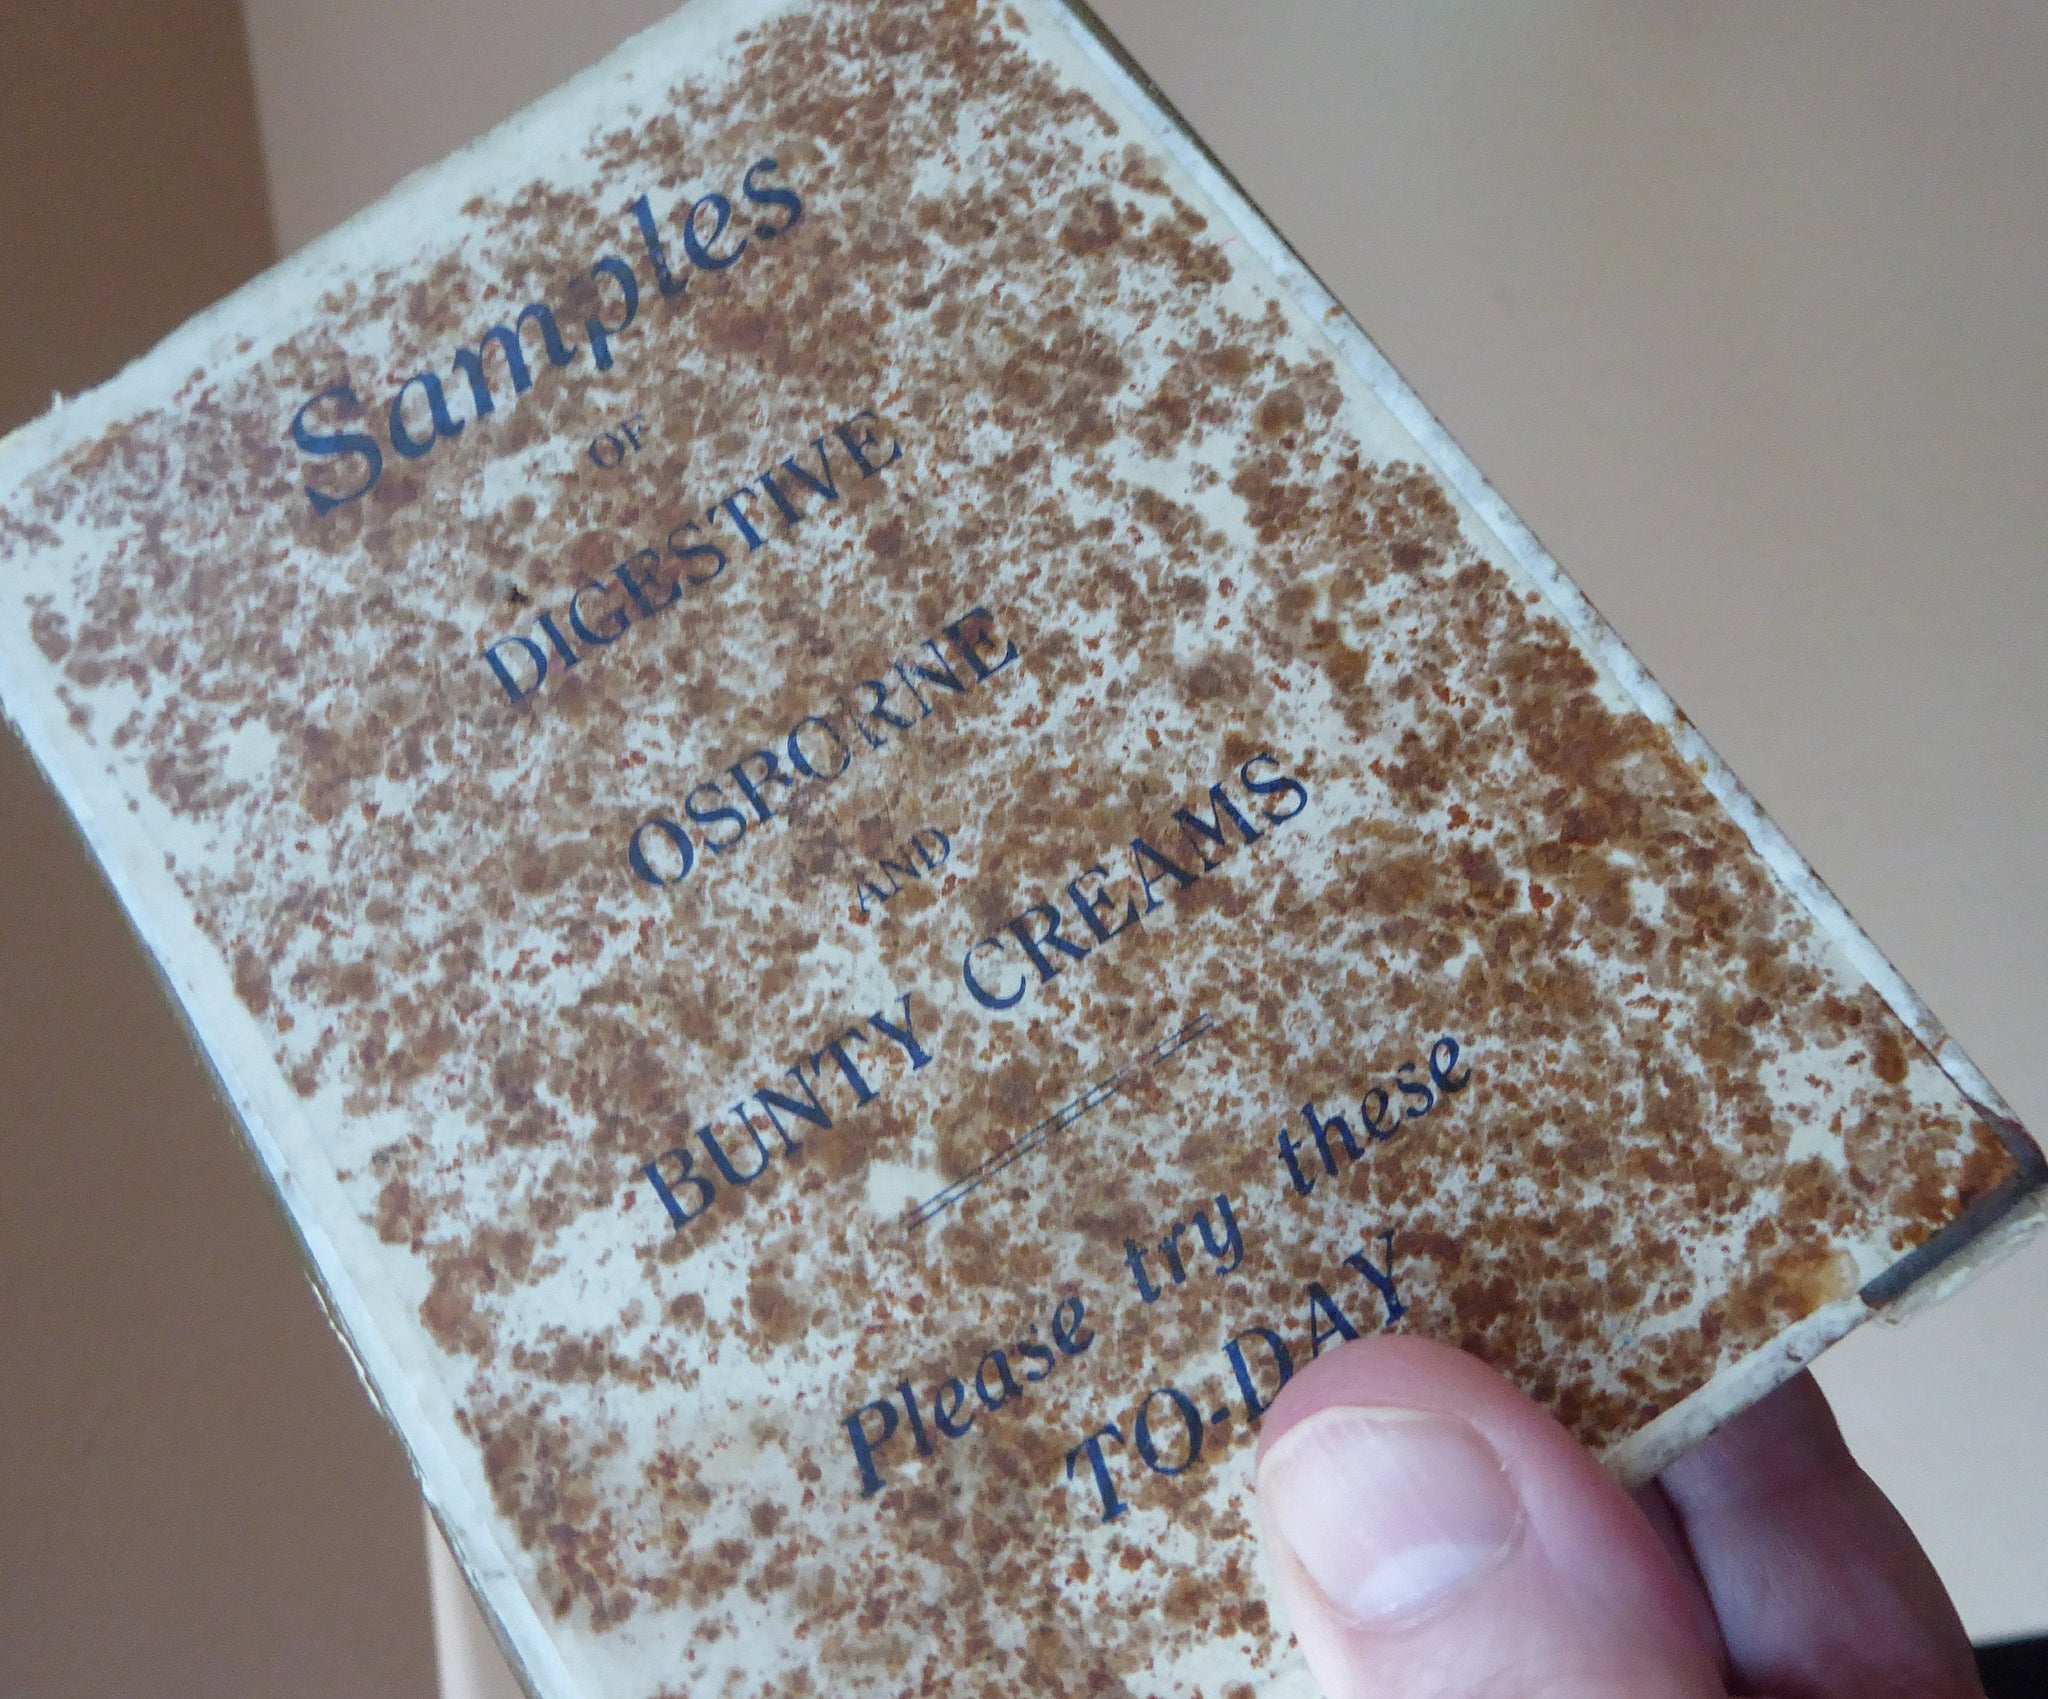 Samples
OF
DIGESTIVE
OSBORNE
AND
BUNTY CREAMS
Please try these
TO-DAY